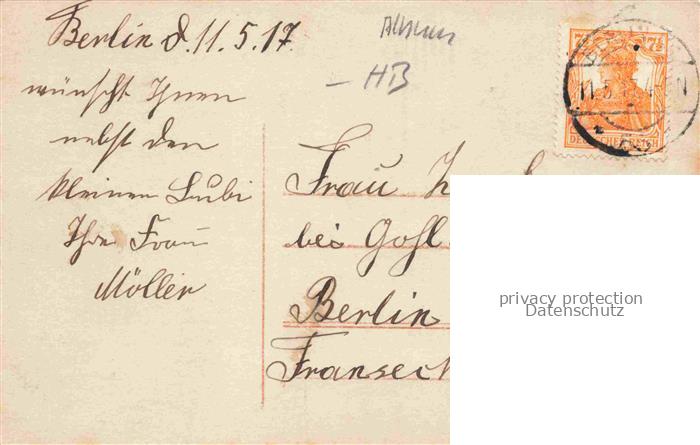 Berlin d. 11.5.17.
wünscht Ihnen
nebst den
kleinen Bubi
Ihre Frau
Möller
HB
7½
DEUTSCHES REICH
11.5.
Frau
bei Gohl
Berlin
Franseck
privacy protection
Datenschutz